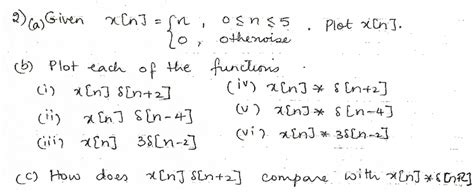 2)(a) Given x[n] = { n , 0 ≤ n ≤ 5 . Plot x[n].
0 , otherwise
(b) Plot each of the functions
(i) x[n] δ[n+2] (iv) x[n] * δ[n+2]
(ii) x[n] δ[n-4] (v) x[n] * δ[n-4]
(iii) x[n] 3δ[n-2] (vi) x[n] * 3δ[n-2]
(c) How does x[n] δ[n+2] compare with x[n] * δ[n+2]